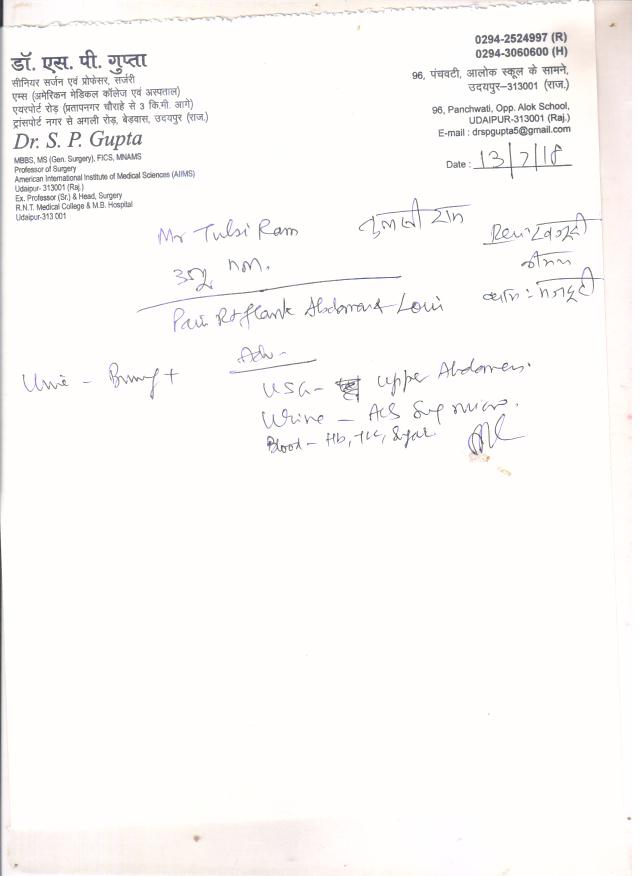 डॉ. एस. पी. गुप्ता
सीनियर सर्जन एवं प्रोफेसर, सर्जरी
एम्स (अमेरिकन मेडिकल कॉलेज एवं अस्पताल)
एयरपोर्ट रोड़ (प्रतापनगर चौराहे से 3 कि.मी. आगे)
ट्रांसपोर्ट नगर से अगली रोड़, बेड़वास, उदयपुर (राज.)
Dr. S. P. Gupta
MBBS, MS (Gen. Surgery), FICS, MNAMS
Professor of Surgery
American International Institute of Medical Sciences (AIIMS)
Udaipur- 313001 (Raj.)
Ex. Professor (Sr.) & Head, Surgery
R.N.T. Medical College & M.B. Hospital
Udaipur-313 001
0294-2524997 (R)
0294-3060600 (H)
96, पंचवटी, आलोक स्कूल के सामने,
उदयपुर-313001 (राज.)
96, Panchwati, Opp. Alok School,
UDAIPUR-313001 (Raj.)
E-mail : drspgupta5@gmail.com
Date : 13/7/18
Mr Tulsi Ram तुलसी राम
Pain Rt flank Abdomen & Loin
Adv -
Urine -
USG - Upper Abdomen.
Urine - micro.
Blood - Hb, TLC, Sugar.